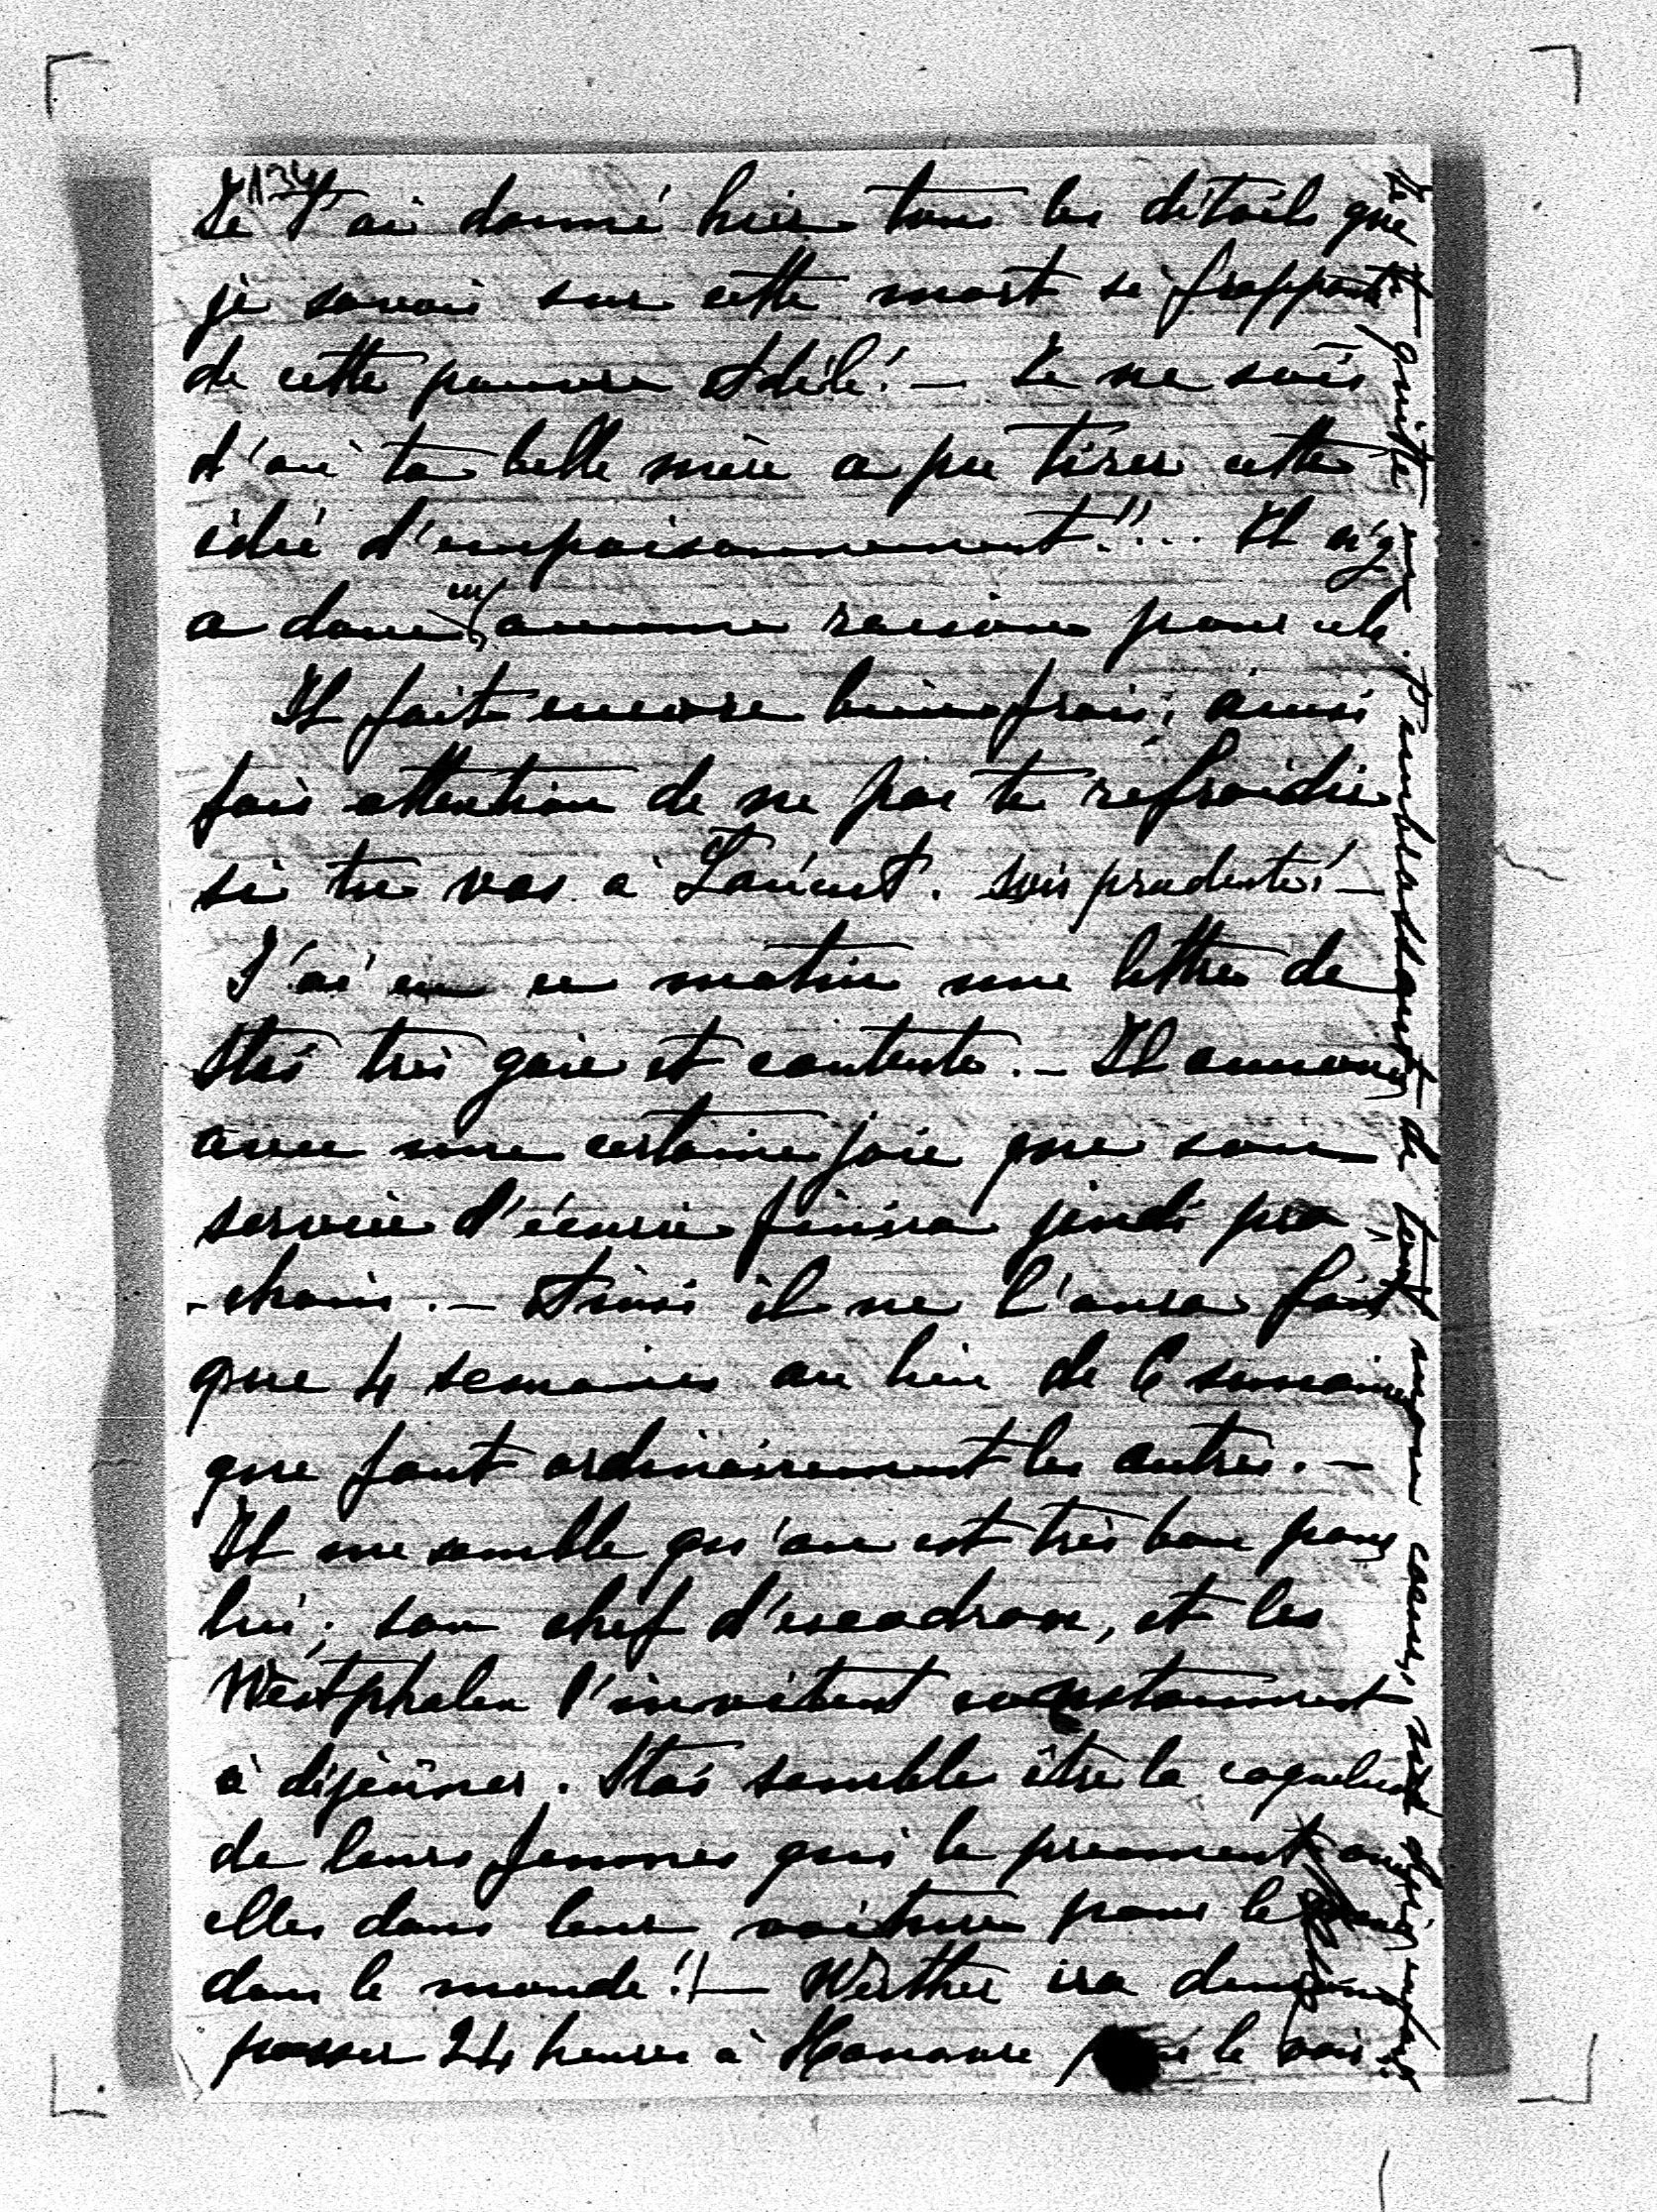 134
Je t'ai donné hier tous les détails que
je savais sur cette mort si frappante
de cette pauvre Adèle! — Je ne sais
d'où ta belle mère a pu tirer cette
idée d'empoisonnement!!... Il n'y
a donc eu aucune raison pour cela.
Il fait encore bien frais; ainsi
fais attention de ne pas te refroidir
si tu vas à Łańcut. Sois prudente! —
J'ai eu ce matin une lettre de
Stas très gaie et contente. — Il annonce
avec une certaine joie que son
service d'écurie finira jeudi pro-
-chain. — Ainsi il ne l'aura fait
que 4 semaines au lieu de 6 semaines
que font ordinairement les autres. —
Il me semble qu'on est très bon pour
lui; son chef d'escadron, et les
Westphalen l'invitent constamment
à déjeûner. Stas semble être la coqueluche
de leurs femmes qui le prennent avec
elles dans leur voiture pour le mener
dans le monde!! — Werther ira demain
passer 24 heures à Hanovre pour le voir.
Je te quitte en t'embrassant de tout mon coeur, ma chérie enfant